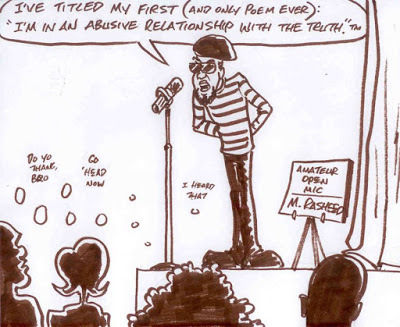 I'VE TITLED MY FIRST (AND ONLY POEM EVER):
"I'M IN AN ABUSIVE RELATIONSHIP WITH THE TRUTH."™
DO YO
THANG,
BRO
GO
'HEAD
NOW
I HEARD
THAT
AMATEUR
OPEN
MIC
M. RASHEED